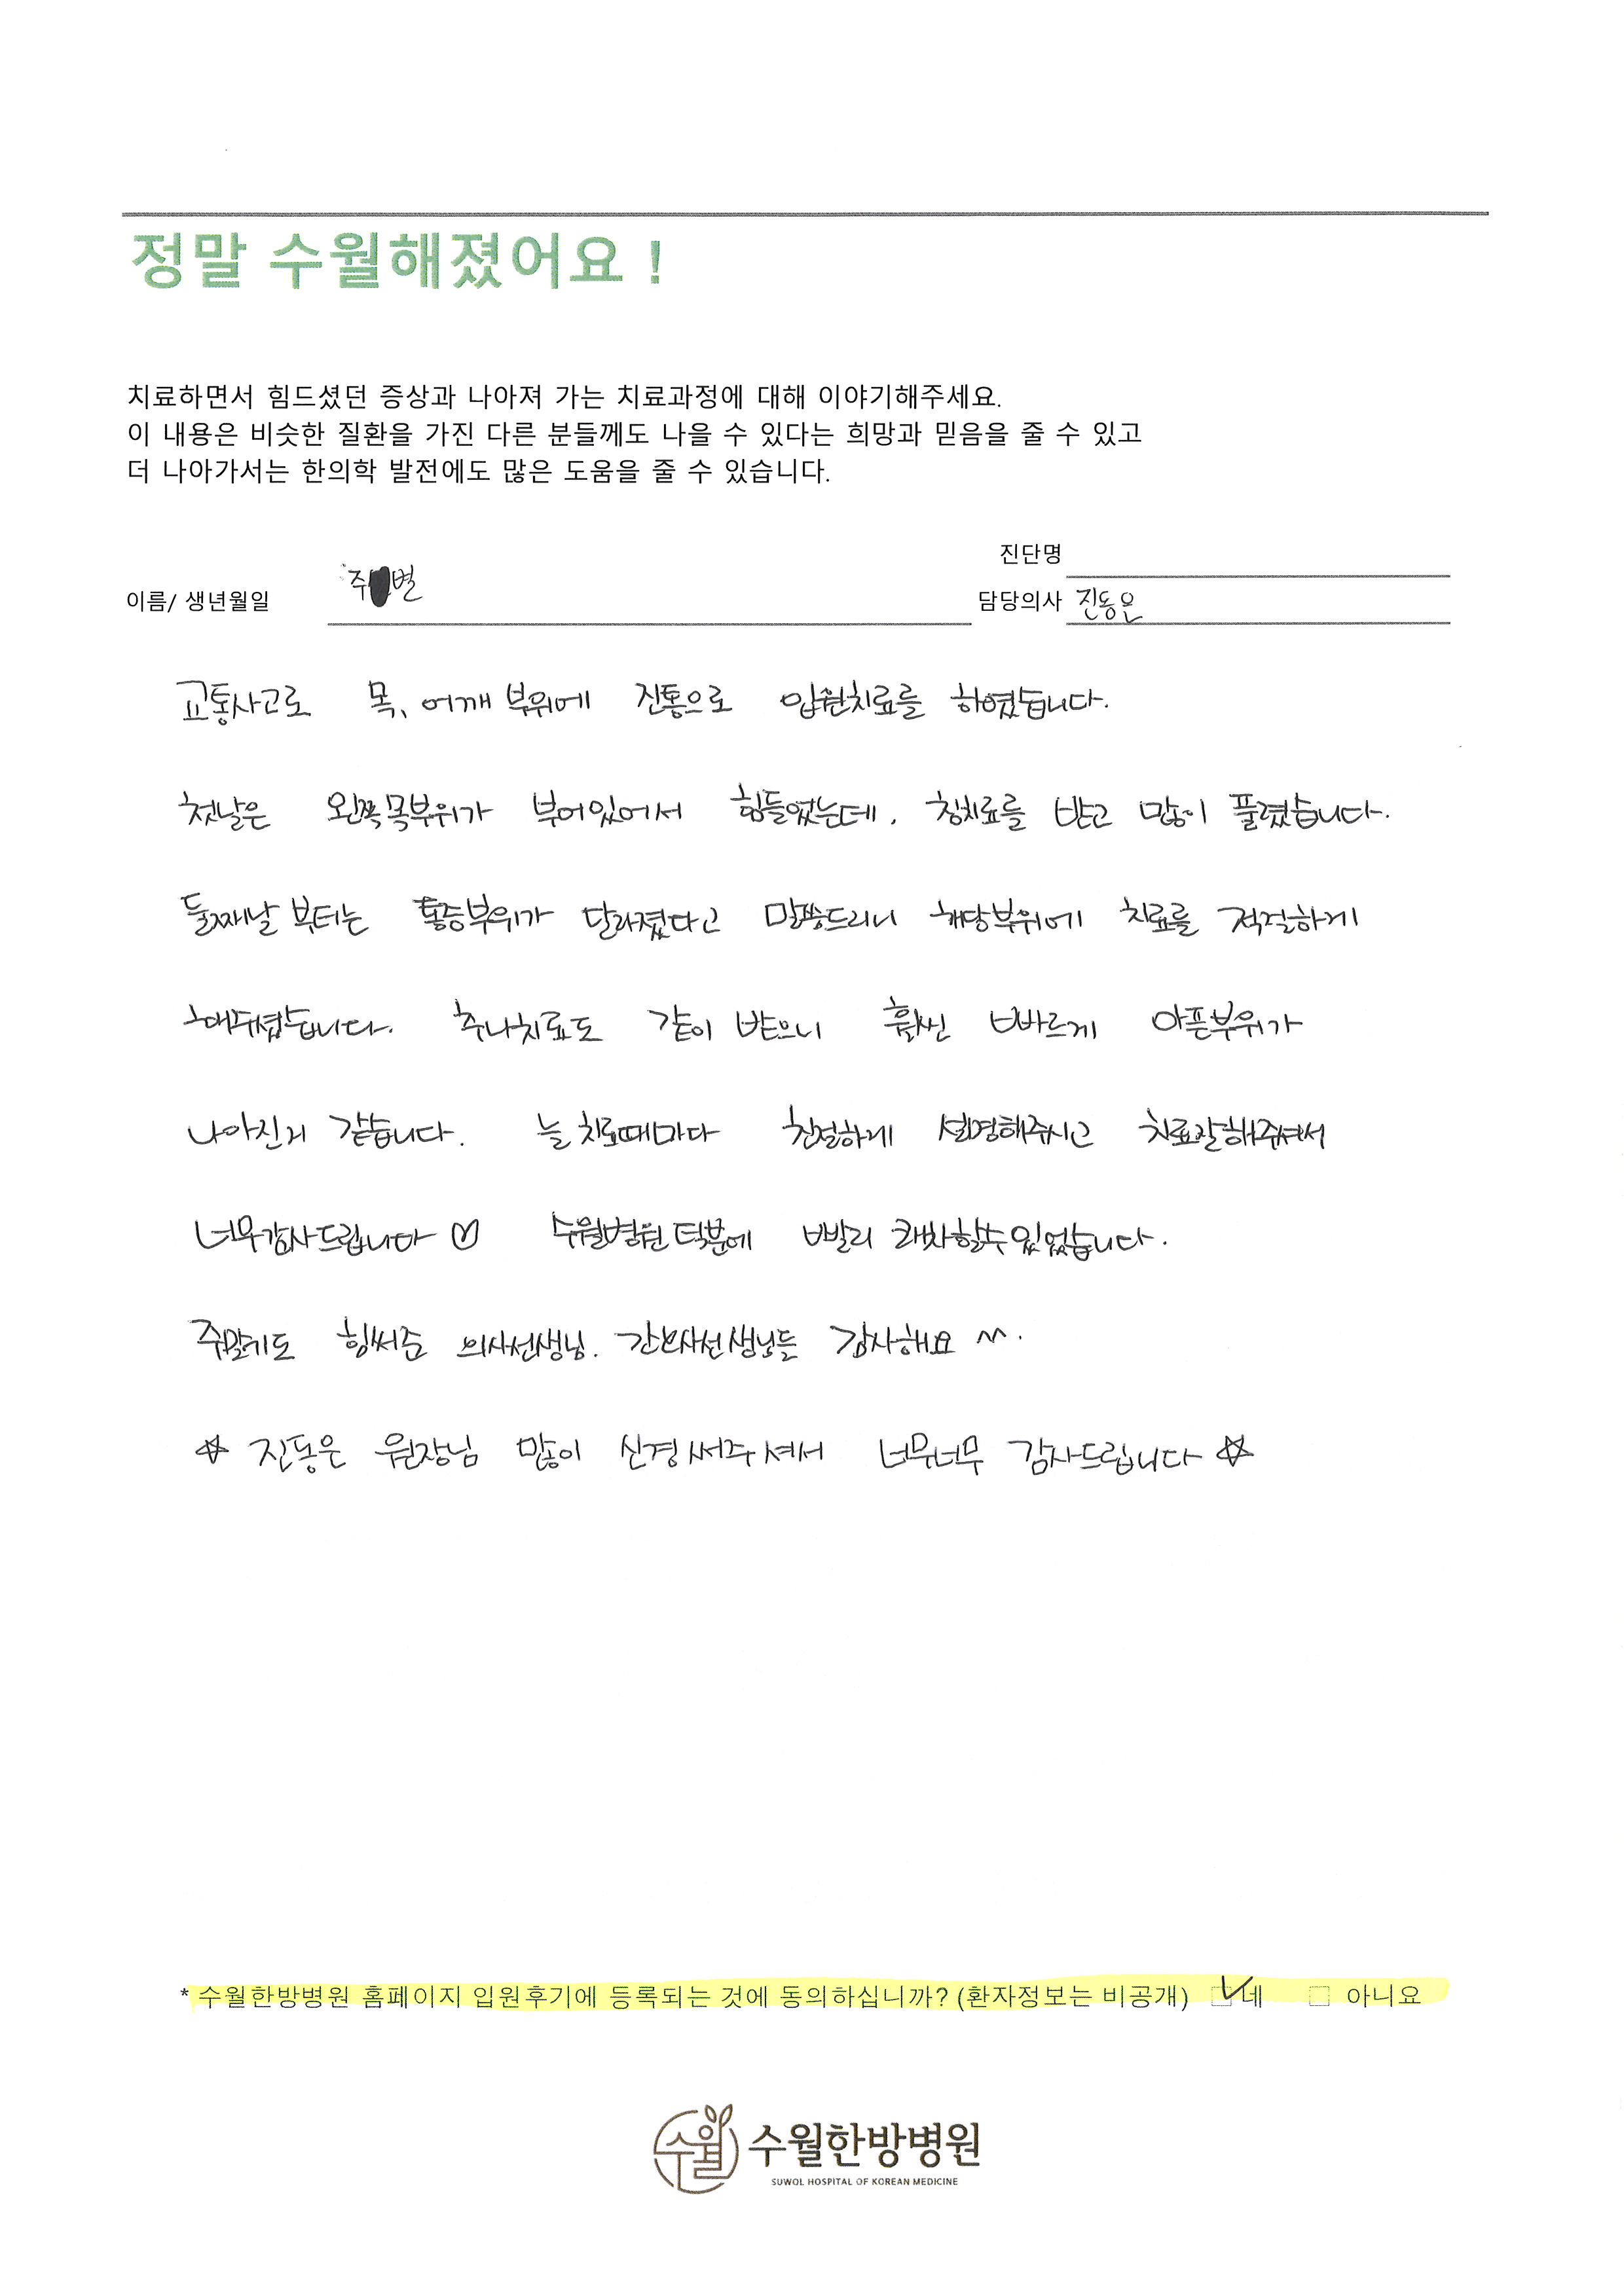 정말 수월해졌어요 !
치료하면서 힘드셨던 증상과 나아져 가는 치료과정에 대해 이야기해주세요.
이 내용은 비슷한 질환을 가진 다른 분들께도 나을 수 있다는 희망과 믿음을 줄 수 있고
더 나아가서는 한의학 발전에도 많은 도움을 줄 수 있습니다.
진단명
이름/ 생년월일 주 별 담당의사 진동은
교통사고로 목, 어깨 부위에 진통으로 입원치료를 하였습니다.
첫날은 왼쪽목부위가 부어있어서 힘들었는데, 침치료를 받고 많이 풀렸습니다.
둘째날 부터는 통증부위가 달라졌다고 말씀드리니 해당부위에 치료를 적절하게
해주셨습니다. 추나치료도 같이 받으니 훨씬 빠르게 아픈부위가
나아진거 같습니다. 늘 치료때마다 친절하게 설명해주시고 치료잘해주셔서
너무감사드립니다 ♡ 수월병원 덕분에 빨리 쾌차할수있었습니다.
주말에도 힘써준 의사선생님. 간호사선생님들 감사해요 ^^.
☆ 진동은 원장님 많이 신경써주셔서 너무너무 감사드립니다 ☆
* 수월한방병원 홈페이지 입원후기에 등록되는 것에 동의하십니까? (환자정보는 비공개) ☑ 네 □ 아니요
수월 수월한방병원
SUWOL HOSPITAL OF KOREAN MEDICINE